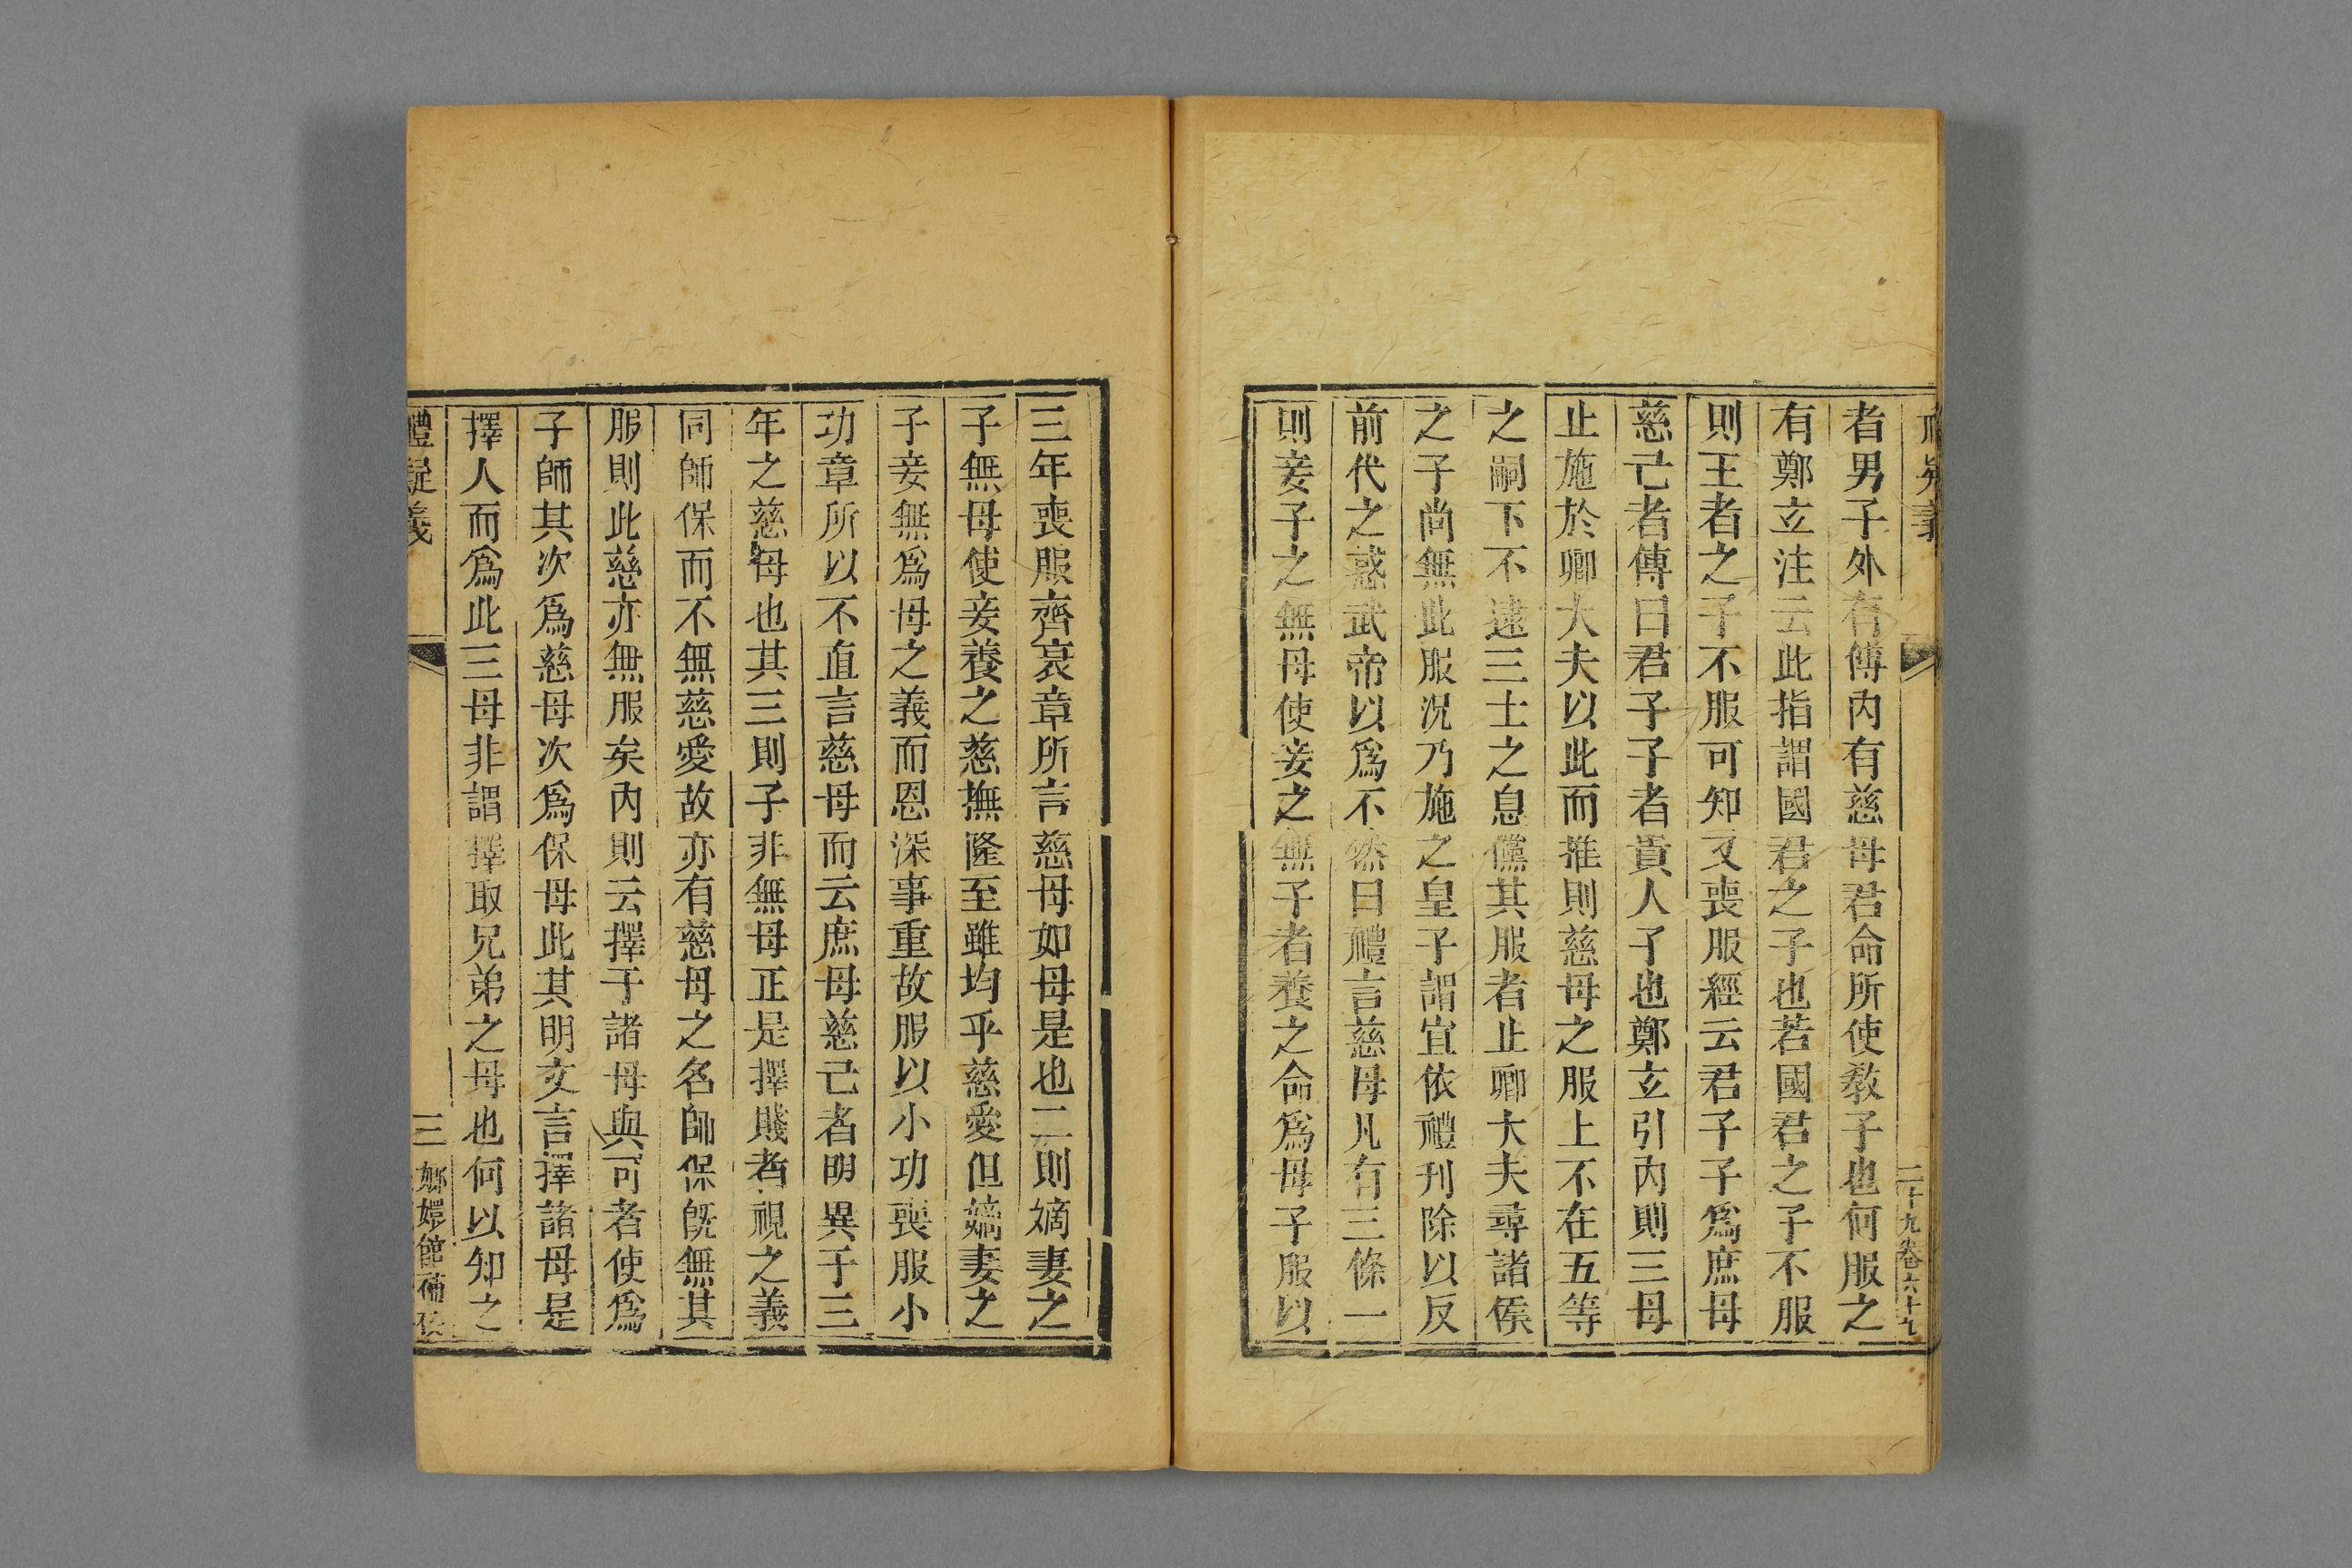 者男子外有傅內有慈母君命所使敎子也何服之
有鄭玄注云此指謂國君之子也若國君之子不服
則王者之子不服可知又喪服經云君子子爲庶母
慈己者傳曰君子子者貴人子也鄭玄引內則三母
止施於卿大夫以此而推則慈母之服上不在五等
之嗣下不逮三士之息儻其服者止卿大夫尋諸侯
之子尚無此服况乃施之皇子謂宜依禮刊除以反
前代之惑武帝以爲不然曰禮言慈母凡有三條一
則妾子之無母使妾之無子者養之命爲母子服以
三年喪服齊衰章所言慈母如母是也二則嫡妻之
子無母使妾養之慈撫隆至雖均乎慈愛但嫡妻之
子妾無爲母之義而恩深事重故服以小功喪服小
功章所以不直言慈母而云庶母慈己者明異于三
年之慈母也其三則子非無母正是擇賤者視之義
同師保而不無慈愛故亦有慈母之名師保旣無其
服則此慈亦無服矣內則云擇于諸母與可者使爲
子師其次爲慈母次爲保母此其明文言擇諸母是
擇人而爲此三母非謂擇取兄弟之母也何以知之
禮疑義 三 嫏嬛館補校